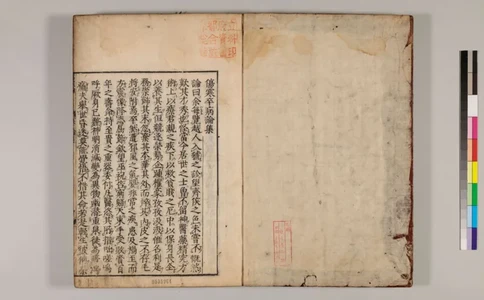 傷寒卒病論集
論曰余每覽越人入虢之診望齊侯之色未嘗不慨然
歎其才秀也怪當今居世之士曾不留神醫藥精究方
術上以療君親之疾下以救貧賤之厄中以保身長全
以養其生但競逐榮勢企踵權豪孜孜汲汲惟名利是
務崇飾其末忽棄其本華其外而悴其內皮之不存毛
將安附焉卒然遭邪風之氣嬰非常之疾患及禍至而
方震慄降志屈節欽望巫祝告窮歸天束手受敗賚百
年之壽命持至貴之重器委付凡醫恣其所措咄嗟嗚
呼厥身已斃神明消滅變為異物幽潛重泉徒為啼泣
痛夫舉世昏迷莫能覺悟不惜其命若是輕生彼何